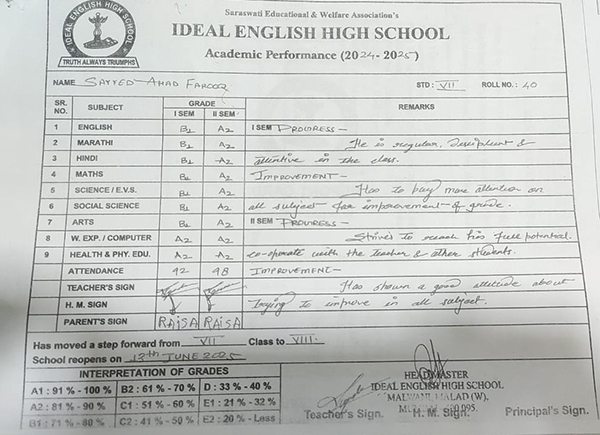 Saraswati Educational & Welfare Association's
IDEAL ENGLISH HIGH SCHOOL
IDEAL ENGLISH HIGH SCHOOL
TRUTH ALWAYS TRIUMPHS
Academic Performance (2024-2025)
NAME SAYYED AHAD FAROOQ STD : VII ROLL NO. : 40
SR. NO. SUBJECT GRADE REMARKS
I SEM II SEM
1 ENGLISH B1 A2 I SEM PROGRESS-
2 MARATHI B1 A2 He is regular, Disciplent &
3 HINDI B1 A2 attentive in the class.
4 MATHS B1 A2 IMPROVEMENT-
5 SCIENCE / E.V.S. B1 A2 Has to pay more attention on
6 SOCIAL SCIENCE B1 A2 all subject for improvement of grade.
7 ARTS B1 A2 II SEM PROGRESS-
8 W. EXP. / COMPUTER A2 A2 Strives to reach his full potential.
9 HEALTH & PHY. EDU. A2 A2 co-operate with the teacher & other students.
ATTENDANCE 92 98 IMPROVEMENT-
TEACHER'S SIGN Has shown a good attitude about
H. M. SIGN trying to improve in all subject.
PARENT'S SIGN RAISA RAISA
Has moved a step forward from VII Class to VIII
School reopens on 13th JUNE 2025
INTERPRETATION OF GRADES
A1 : 91 % - 100 % B2 : 61 % - 70 % D : 33 % - 40 %
A2 : 81 % - 90 % C1 : 51 % - 60 % E1 : 21 % - 32 %
B1 : 71 % - 80 % C2 : 41 % - 50 % E2 : 20 % - Less
HEADMASTER
IDEAL ENGLISH HIGH SCHOOL
MALWANI, MALAD (W),
095.
Teacher's Sign. H. M. Sign. Principal's Sign.